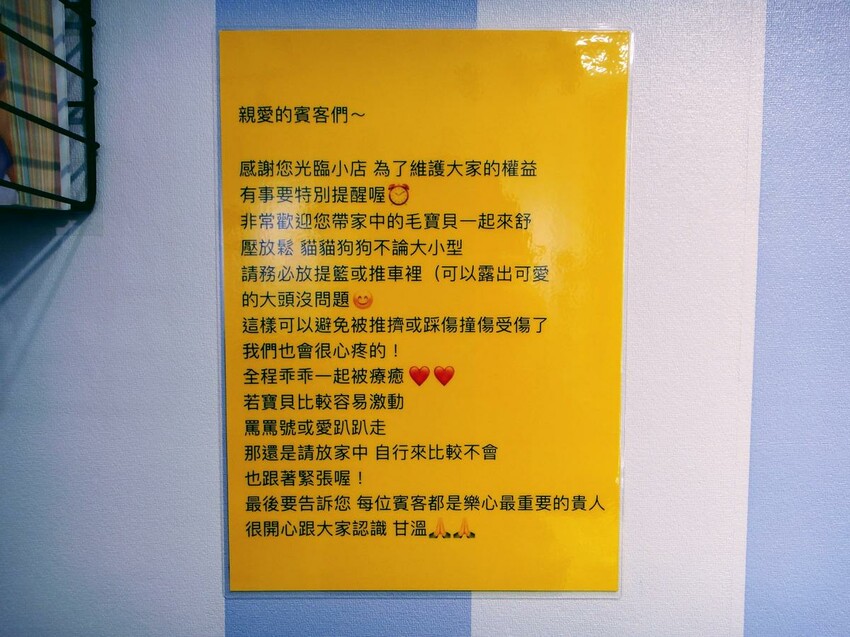 親愛的賓客們～
感謝您光臨小店 為了維護大家的權益
有事要特別提醒喔⏰
非常歡迎您帶家中的毛寶貝一起來舒
壓放鬆 貓貓狗狗不論大小型
請務必放提籃或推車裡（可以露出可愛
的大頭沒問題😊
這樣可以避免被推擠或踩傷撞傷受傷了
我們也會很心疼的！
全程乖乖一起被療癒❤️❤️
若寶貝比較容易激動
罵罵號或愛趴趴走
那還是請放家中 自行來比較不會
也跟著緊張喔！
最後要告訴您 每位賓客都是樂心最重要的貴人
很開心跟大家認識 甘溫🙏🙏